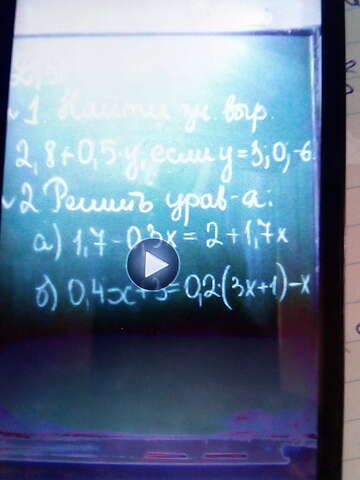 1. Найти зн. выр.
2,8+0,5·y, если y=3; 0; -6.
2 Решить урав-я:
а) 1,7-0,3x = 2+1,7x
б) 0,4x+3=0,2·(3x+1)-x